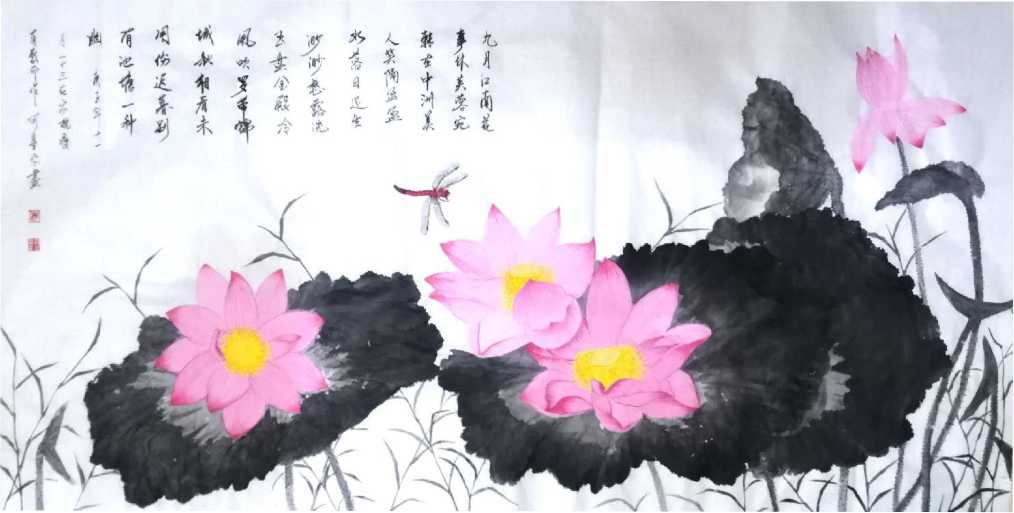 九月江南花
事休芙蓉宛
转在中洲美
人笑隔盈盈
水落日还生
渺渺愁露洗
玉盘金殿冷
风吹罗带锦
城秋相看未
用伤迟暮别
有池塘一种
幽 庚子年十一